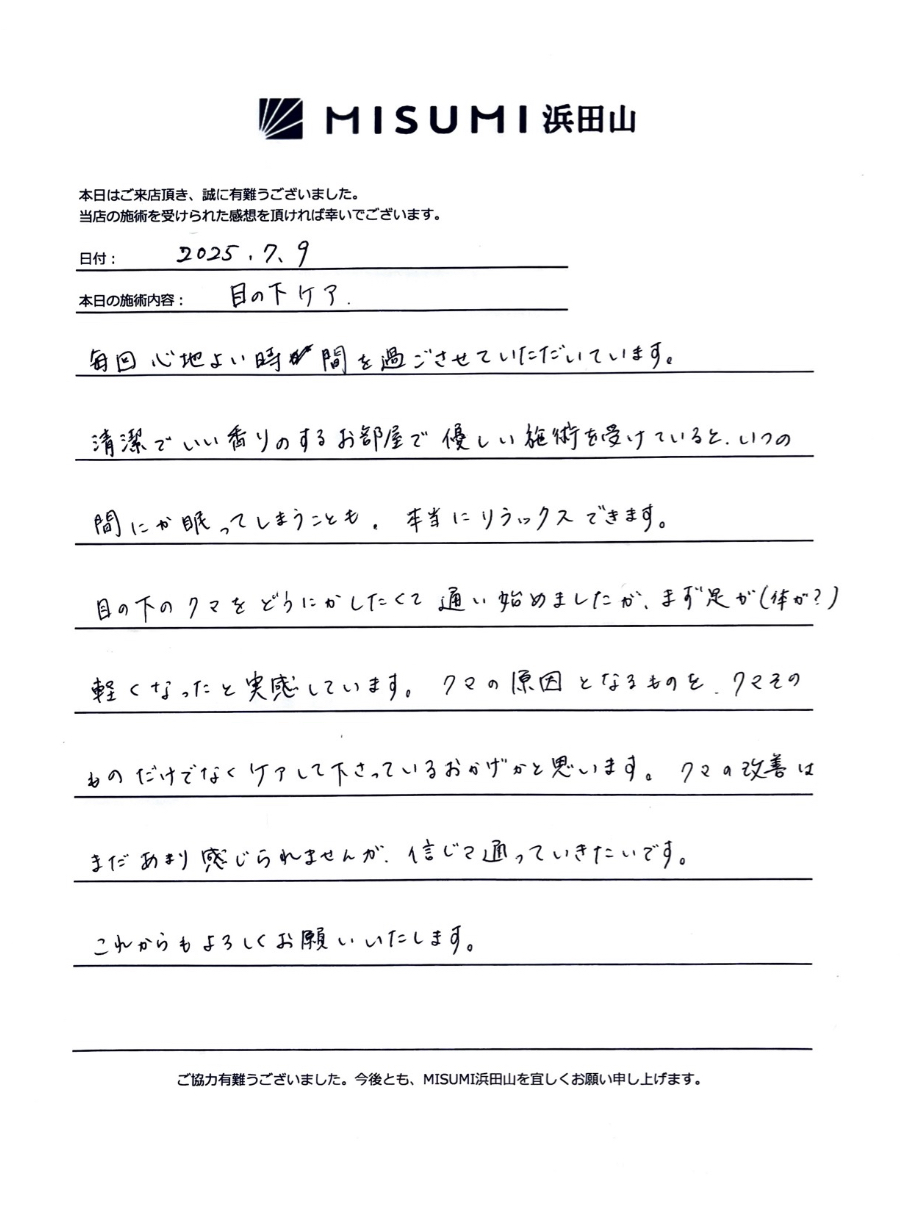 MISUMI 浜田山
本日はご来店頂き、誠に有難うございました。
当店の施術を受けられた感想を頂ければ幸いでございます。
日付： 2025.7.9
本日の施術内容： 目の下ケア.
毎回 心地よい時間を過ごさせていただいています。
清潔でいい香りのするお部屋で優しい施術を受けていると、いつの
間にか眠ってしまうことも。本当にリラックスできます。
目の下のクマをどうにかしたくて通い始めましたが、まず足が(体が?)
軽くなったと実感しています。クマの原因となるものを、クマその
ものだけでなくケアして下さっているおかげかと思います。クマの改善は
まだあまり感じられませんが、信じて通っていきたいです。
これからもよろしくお願いいたします。
ご協力有難うございました。今後とも、MISUMI浜田山を宜しくお願い申し上げます。